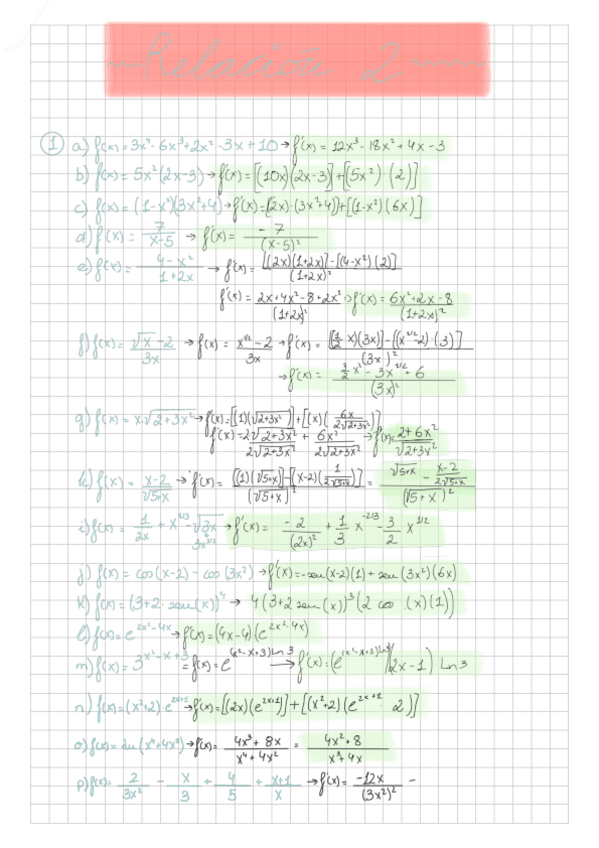 Relación 2
① a) f(x) = 3x⁴ - 6x³ + 2x² - 3x + 10 → f'(x) = 12x³ - 18x² + 4x - 3
b) f(x) = 5x²(2x-3) → f'(x) = [(10x)(2x-3)] + [(5x²)·(2)]
c) f(x) = (1-x²)(3x²+4) → f'(x) = [2x)·(3x²+4)] + [(1-x²)(6x)]
d) f(x) = 7/(x-5) → f'(x) = -7/(x-5)²
e) f(x) = (4-x²)/(1+2x) → f'(x) = ([(2x)(1+2x)] - [(4-x²)(2)])/(1+2x)²
f'(x) = (2x+4x²-8+2x²)/(1+2x)² → f'(x) = (6x²+2x-8)/(1+2x)²
f) f(x) = (√x-2)/3x → f(x) = (x^(1/2)-2)/3x → f'(x) = ([(1/2 x)(3x)] - [(x^(1/2)-2)·(3)])/(3x)²
g) f(x) = x·√(2+3x²) → f'(x) = [(1)(√(2+3x²))] + [(x)(6x/(2√(2+3x²)))]
f'(x) = 2√(2+3x²)/(2√(2+3x²)) + 6x²/(2√(2+3x²)) → f'(x) = (2+6x²)/√(2+3x²)
h) f(x) = (x-2)/√(5+x) → f'(x) = ([(1)(√(5+x))] - [(x-2)(1/(2√(5+x)))])/(√(5+x))² = (√(5+x) - (x-2)/(2√(5+x)))/(√(5+x))²
j) f(x) = cos(x-2) - cos(3x²) → f'(x) = -sen(x-2)(1) + sen(3x²)(6x)
k) f(x) = (3+2·sen(x))⁴ → 4(3+2sen(x))³(2cos(x)(1))
l) f(x) = e^(2x²-4x) → f'(x) = (4x-4)(e^(2x²-4x))
m) f(x) = 3^(x²-x+3) = f(x) = e^((x²-x+3)Ln3) → f'(x) = (e^((x²-x+3)Ln3))(2x-1)·Ln3
n) f(x) = (x²+2)·e^(2x+1) → f'(x) = [(2x)(e^(2x+1))] + [(x²+2)(e^(2x+1)·2)]
o) f(x) = Ln(x⁴+4x²) → f'(x) = (4x³+8x)/(x⁴+4x²) = (4x²+8)/(x³+4x)
p) f(x) = 2/3x² - x/3 + 4/5 + (x+1)/x → f'(x) = -12x/(3x²)² -